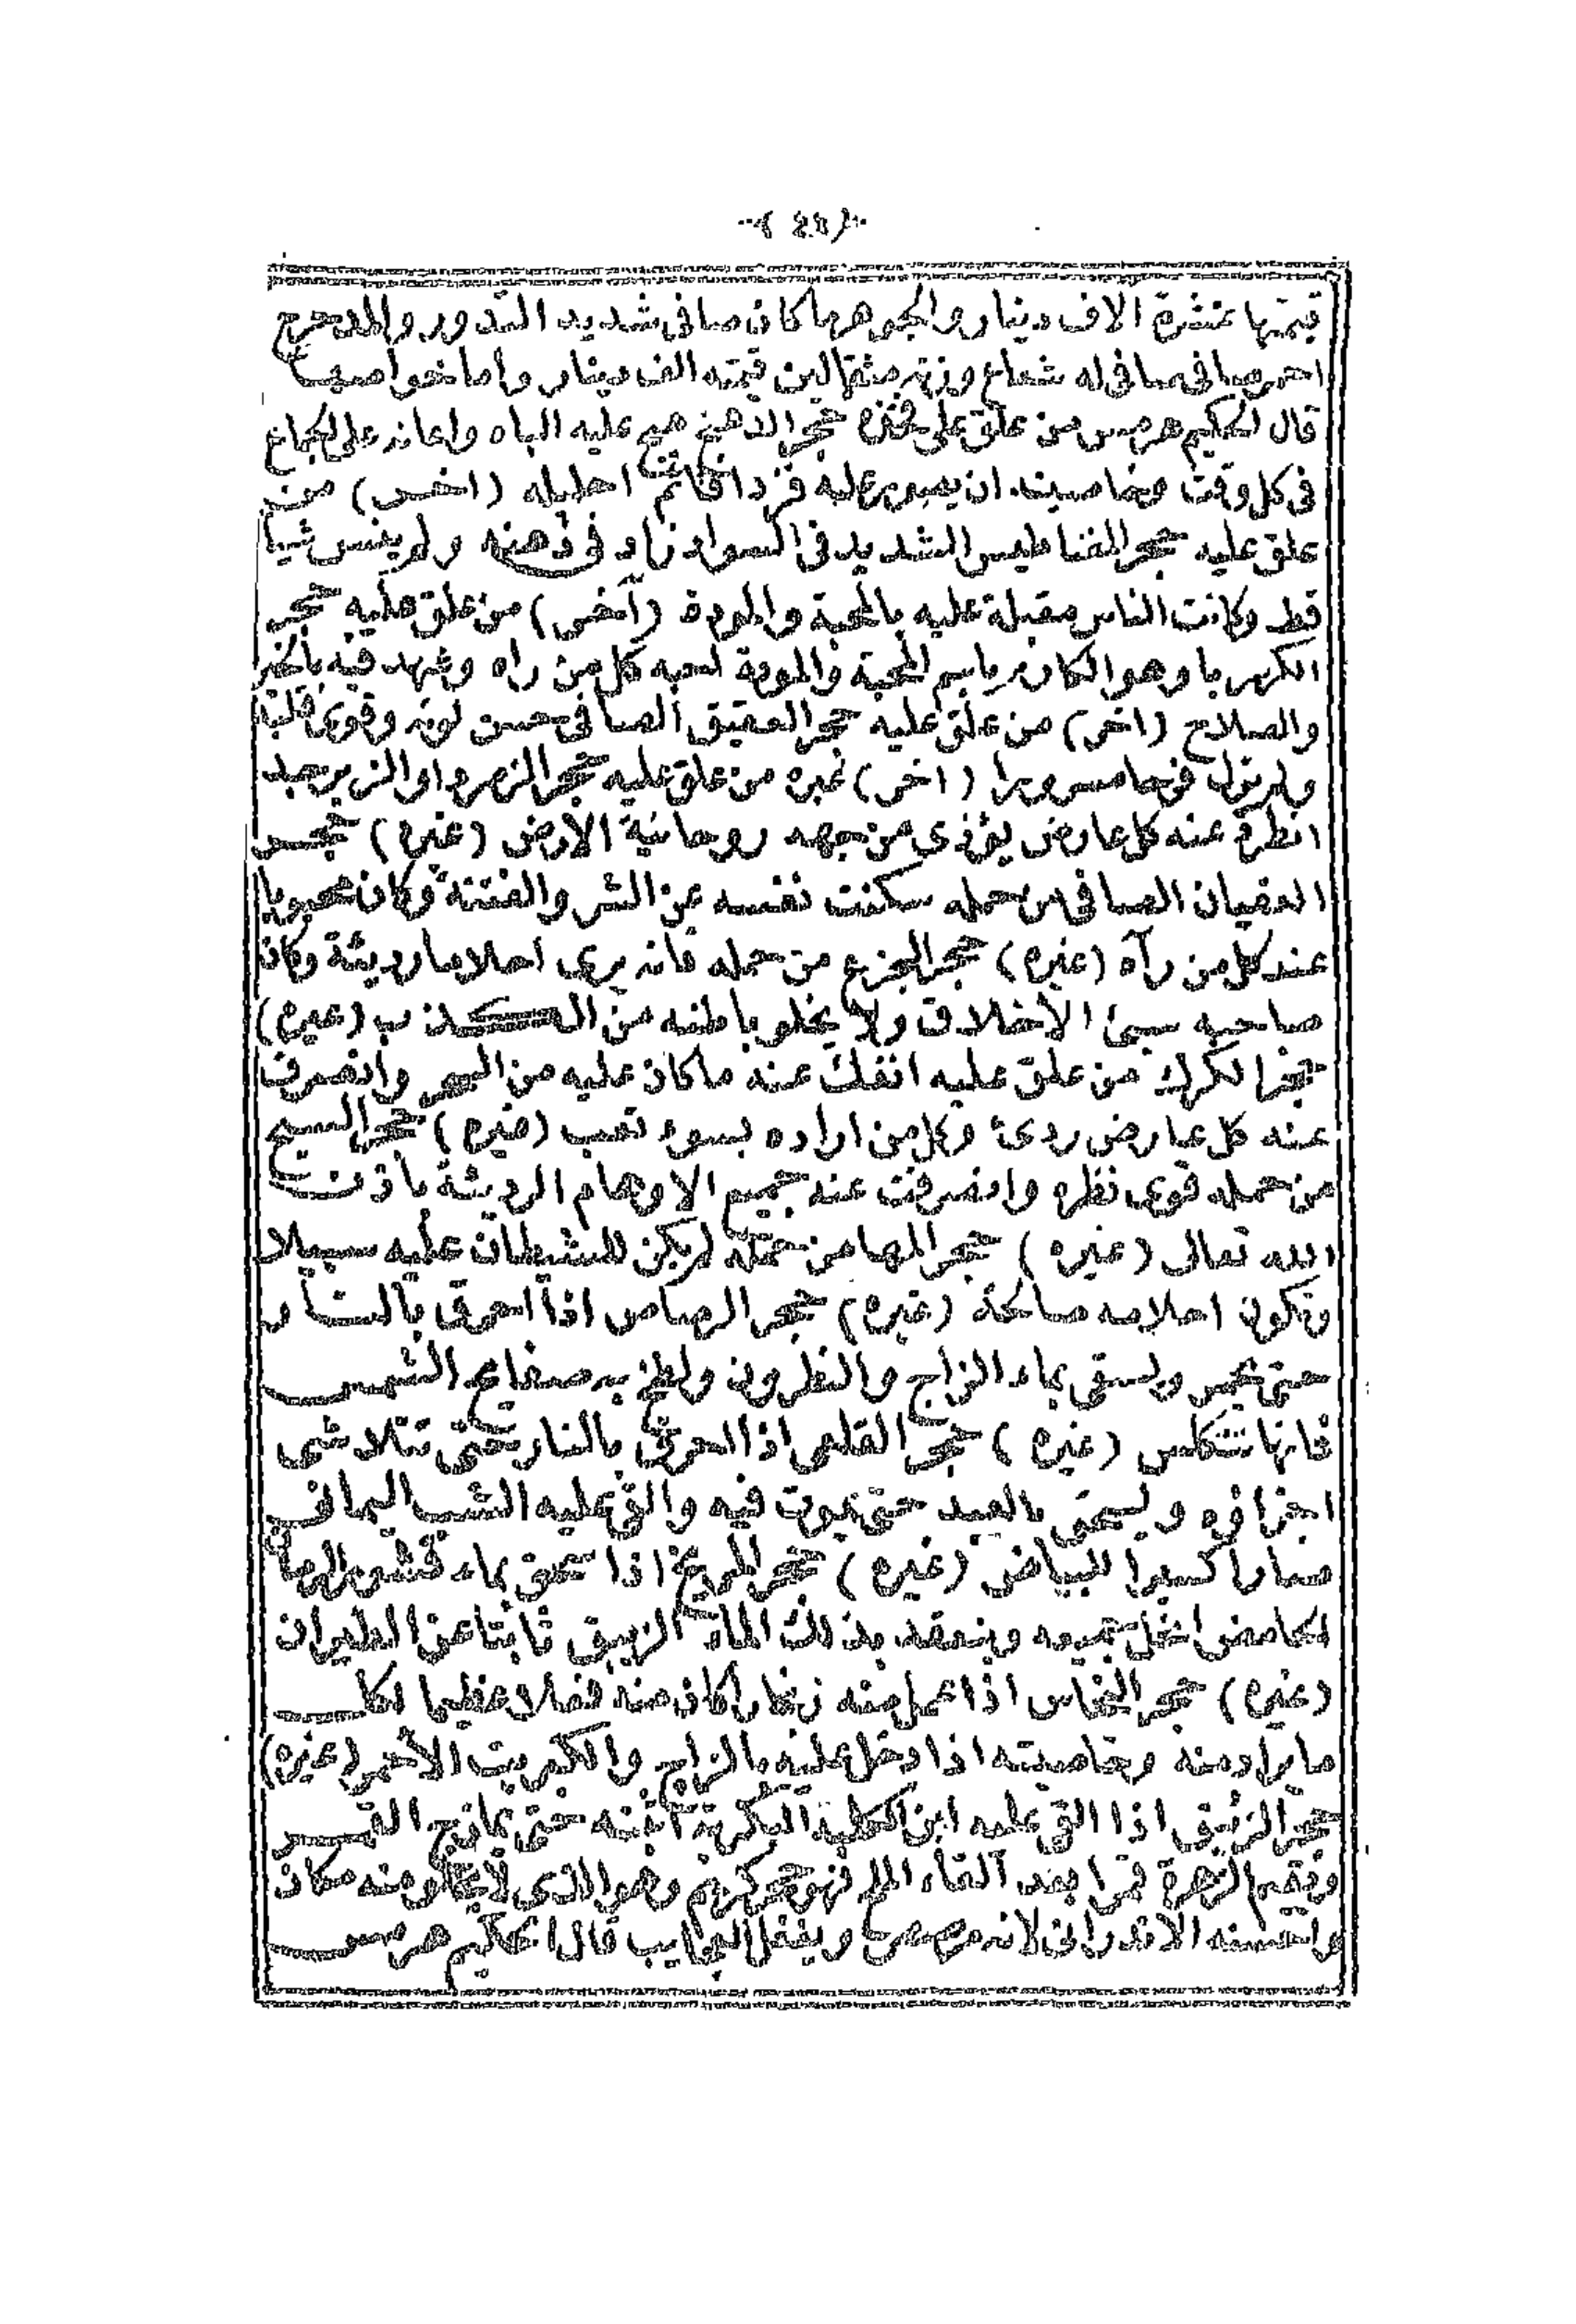 قيمتها عشرة الاف دينار والجوهر ما كان صافى شديد التدور والمدحرج
احمر صافى صافى له شعاع وزنه مثقالين قيمته الف دينار وأما خواصها
قال الحكيم هرمس من علق على فخذه حجر الدهنج هيج عليه الباه واعانه على الجماع
فى كل وقت وخاصيته ان يصور عليه قردا قائم احليله (اخر) من
علق عليه حجر المغناطيس الشديد فى السواد زاد فى ذهنه ولم ينس شيأ
قط وكانت الناس مقبلة عليه بالمحبة والمودة (آخر) من علق عليه حجر
الكهربا وهو الكان باسم المحبة والمودة احبه كل من راه وشهد فيه بالخير
والصلاح (اخر) من علق عليه حجر العقيق الصافى حسن لونه وقوى قلبه
ولم يزل فرحا مسرورا (اخر) غيره من علق عليه حجر الزمرد او الزبرجد
انطرح عنه كل عارض يؤذى من جهه روحانية الارض (غيره) حجر
العقيان الصافى من حمله سكنت نفسه عن الشر والفتنة وكان محبوبا
عند كل من رآه (غيره) حجر الجزع من حمله فانه يرى احلاما رديئة وكان
صاحبه سيئ الأخلاق ولا يخلو باطنه من الكذب (غيره)
حجر الكرك من علق عليه انفك عنه ماكان عليه من السحر وانصرف
عنه كل عارض ردئ وكل من اراده بسوء تعب (غيره) حجر السبج
من حمله قوى نظره وانصرفت عنه جميع الاوهام الرديئة باذن
الله تعالى (غيره) حجر المها من حمله لم يكن للشيطان عليه سبيلا
وتكون احلامه صالحة (غيره) حجر الرصاص اذا احرق بالنار
حتى يحمر ويسقى بماء الزاج والنطرون ولطخ به صفايح الشمس
فانها تتكلس (غيره) حجر القلعى اذا احرق بالنار حتى تتلاشى
اجزاؤه ويسحق بالعبد حتى يموت فيه والقى عليه الشب اليمانى
صار اكسيرا للبياض (غيره) حجر المريخ اذا سحق بماء قشور الرمان
الحامض انحل جميعه وينعقد بذلك الماء الزيبق ثابتا عن الطيران
(غيره) حجر النحاس اذا عمل منه زنجارا كان منه فعلا عظيما لكل
ما يراد منه وخاصيته اذا دخل عليه بالزاج والكبريت الأحمر (غيره)
حجر الزئبق اذا القى عليه لبن الكلبة البكرية أثبته حتى يمازج القمر
ويقيم الزهرة قمرا بعد القاء الملح فهو حجر كريم وهو الذى لا يخلو منه مكان
واحسنه الاندرانى لانه ويفعل العجايب قال الحكيم هرمس